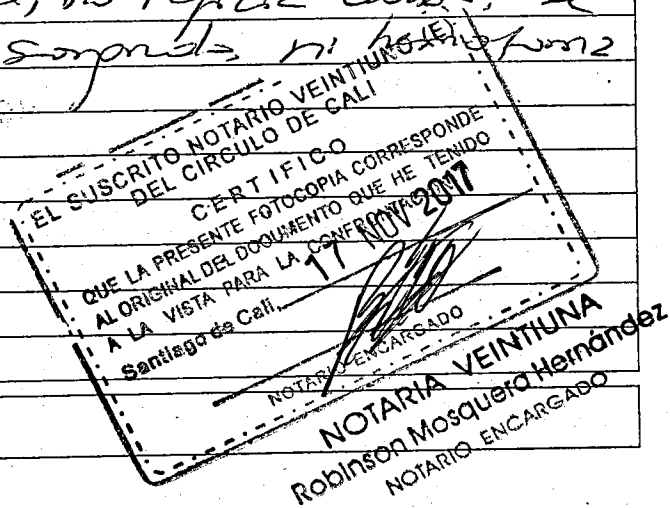 EL SUSCRITO NOTARIO VEINTIUNO (E)
DEL CIRCULO DE CALI
CERTIFICO
QUE LA PRESENTE FOTOCOPIA CORRESPONDE
AL ORIGINAL DEL DOCUMENTO QUE HE TENIDO
A LA VISTA PARA LA
17 NOV 2017
Santiago de Cali,
NOTARIO ENCARGADO
NOTARIA VEINTIUNA
Robinson Mosquera Hernández
NOTARIO ENCARGADO